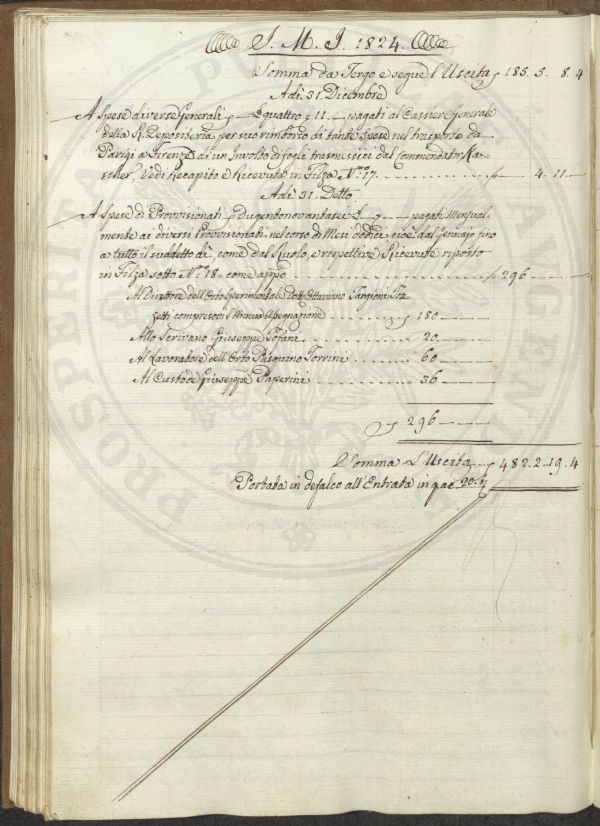 J. M. J. 1824.
Somma da Tergo e segue l'Uscita 185. 5. 8. 4
Adì. 31. Dicembre
A Spese diverse Generali quattro 11. pagati al Cassiere Generale
della R. Depositeria per suo rimborso di tante spese nel trasporto da
Parigi a Firenze di un Involto di fogli trasmessici dal Commendator Kar-
cher, Vedi Recapito e Ricevuta in Filza N.° 17. 4. 11.
Adì. 31. Detto
A Spese di Provvisionati Dugentonovantasei pagati Mensual-
mente ai diversi Provvisionati nel corso di Mesi dodici cioè dal Gennajo fino
a tutto il suddetto dì, come dal Ruolo, e respettive Ricevute riposto
in Filza sotto N.° 18. come appo. 296
Al Direttore dell'Orto Sperimentale Dott. Ottaviano Targioni Toz-
zetti compresovi l'Annua Assegnazione 180
Allo Scrivano Giuseppe Tofani 20
Al Lavoratore dell'Orto Pasquino Torrini 60
Al Custode Giuseppe Paperini 36
296
Somma L'Uscita 482. 2. 19. 4
Portata in defalco all'Entrata in q. a c. 20. t.
PROSPERI